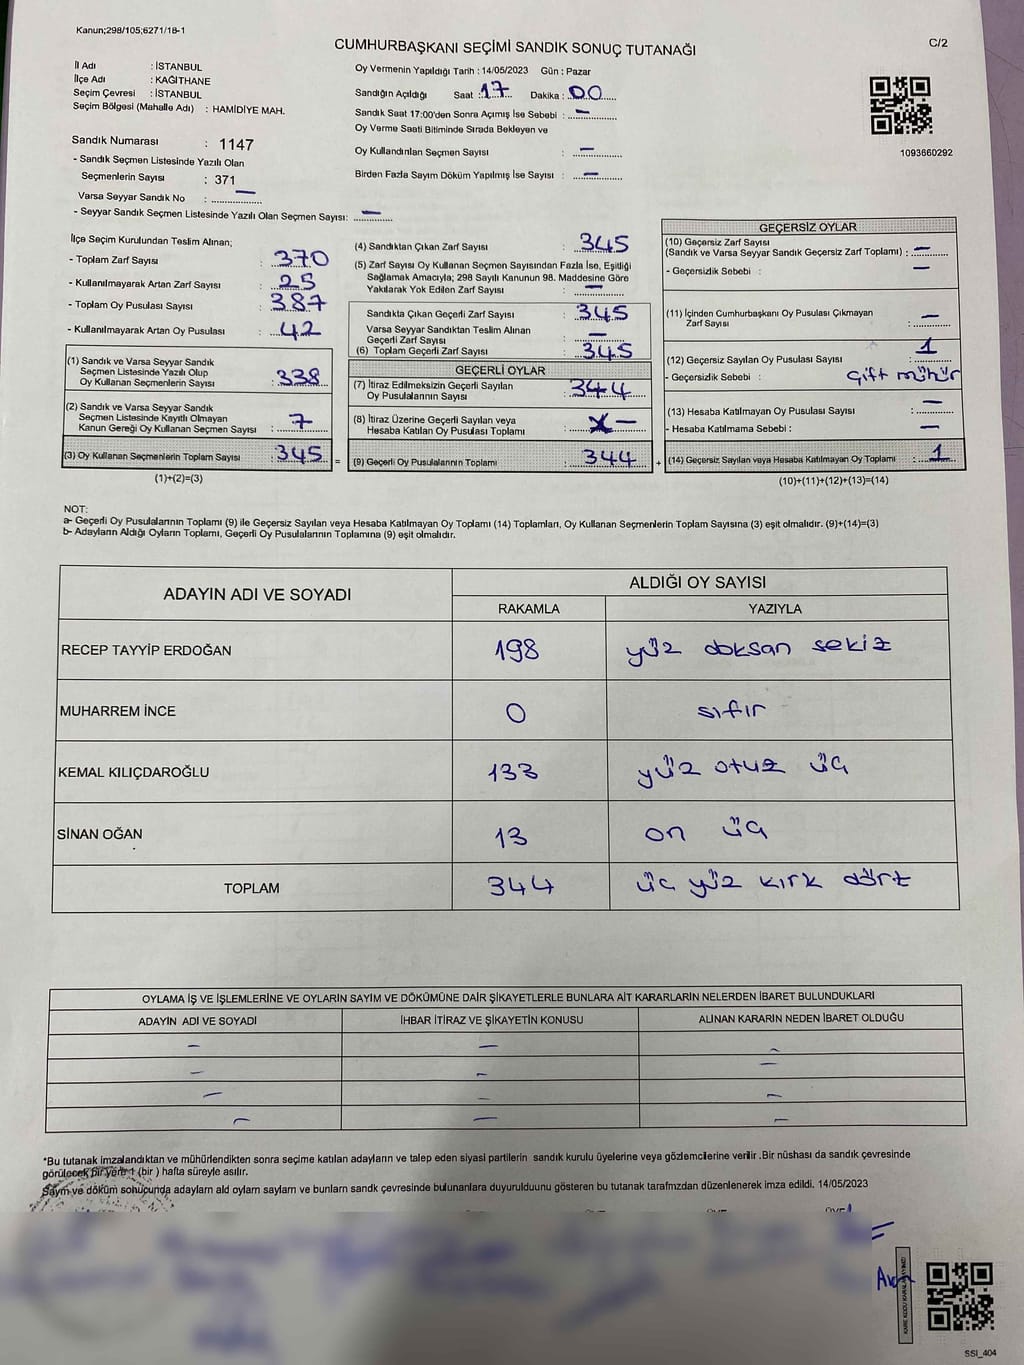 Kanun;298/105;6271/18-1
CUMHURBAŞKANI SEÇİMİ SANDIK SONUÇ TUTANAĞI
C/2
İl Adı : İSTANBUL
İlçe Adı : KAĞITHANE
Seçim Çevresi : İSTANBUL
Seçim Bölgesi (Mahalle Adı) : HAMİDİYE MAH.
Oy Vermenin Yapıldığı Tarih : 14/05/2023 Gün : Pazar
Sandığın Açıldığı Saat : 17 Dakika : 00
Sandık Saat 17:00'den Sonra Açımış İse Sebebi : —
Oy Verme Saati Bitiminde Sırada Bekleyen ve
Oy Kullandırılan Seçmen Sayısı : —
Birden Fazla Sayım Döküm Yapılmış İse Sayısı : —
1093660292
Sandık Numarası : 1147
- Sandık Seçmen Listesinde Yazılı Olan
Seçmenlerin Sayısı : 371
Varsa Seyyar Sandık No : —
- Seyyar Sandık Seçmen Listesinde Yazılı Olan Seçmen Sayısı: —
İlçe Seçim Kurulundan Teslim Alınan;
- Toplam Zarf Sayısı : 370
- Kullanılmayarak Artan Zarf Sayısı : 25
- Toplam Oy Pusulası Sayısı : 387
- Kullanılmayarak Artan Oy Pusulası : 42
(1) Sandık ve Varsa Seyyar Sandık
Seçmen Listesinde Yazılı Olup
Oy Kullanan Seçmenlerin Sayısı : 338
(2) Sandık ve Varsa Seyyar Sandık
Seçmen Listesinde Kayıtlı Olmayan
Kanun Gereği Oy Kullanan Seçmen Sayısı : 7
(3) Oy Kullanan Seçmenlerin Toplam Sayısı : 345 =
(1)+(2)=(3)
(4) Sandıktan Çıkan Zarf Sayısı : 345
(5) Zarf Sayısı Oy Kullanan Seçmen Sayısından Fazla İse, Eşitliği
Sağlamak Amacıyla; 298 Sayılı Kanunun 98. Maddesine Göre
Yakılarak Yok Edilen Zarf Sayısı : —
Sandıkta Çıkan Geçerli Zarf Sayısı : 345
Varsa Seyyar Sandıktan Teslim Alınan
Geçerli Zarf Sayısı : —
(6) Toplam Geçerli Zarf Sayısı : 345
GEÇERLİ OYLAR
(7) İtiraz Edilmeksizin Geçerli Sayılan
Oy Pusulalarının Sayısı : 344
(8) İtiraz Üzerine Geçerli Sayılan veya
Hesaba Katılan Oy Pusulası Toplamı : —
(9) Geçerli Oy Pusulalarının Toplamı : 344 +
GEÇERSİZ OYLAR
(10) Geçersiz Zarf Sayısı
(Sandık ve Varsa Seyyar Sandık Geçersiz Zarf Toplamı) : —
- Geçersizlik Sebebi : —
(11) İçinden Cumhurbaşkanı Oy Pusulası Çıkmayan
Zarf Sayısı : —
(12) Geçersiz Sayılan Oy Pusulası Sayısı : 1
- Geçersizlik Sebebi : Çift mühür
(13) Hesaba Katılmayan Oy Pusulası Sayısı : —
- Hesaba Katılmama Sebebi : —
(14) Geçersiz Sayılan veya Hesaba Katılmayan Oy Toplamı : 1
(10)+(11)+(12)+(13)=(14)
NOT:
a- Geçerli Oy Pusulalarının Toplamı (9) ile Geçersiz Sayılan veya Hesaba Katılmayan Oy Toplamı (14) Toplamları, Oy Kullanan Seçmenlerin Toplam Sayısına (3) eşit olmalıdır. (9)+(14)=(3)
b- Adayların Aldığı Oyların Toplamı, Geçerli Oy Pusulalarının Toplamına (9) eşit olmalıdır.
ADAYIN ADI VE SOYADI
ALDIĞI OY SAYISI
RAKAMLA YAZIYLA
RECEP TAYYİP ERDOĞAN 198 yüz doksan sekiz
MUHARREM İNCE 0 sıfır
KEMAL KILIÇDAROĞLU 133 yüz otuz üç
SİNAN OĞAN 13 on üç
TOPLAM 344 üç yüz kırk dört
OYLAMA İŞ VE İŞLEMLERİNE VE OYLARIN SAYIM VE DÖKÜMÜNE DAİR ŞİKAYETLERLE BUNLARA AİT KARARLARIN NELERDEN İBARET BULUNDUKLARI
ADAYIN ADI VE SOYADI İHBAR İTİRAZ VE ŞİKAYETİN KONUSU ALINAN KARARIN NEDEN İBARET OLDUĞU
— — —
— — —
— — —
— — —
*Bu tutanak imzalandıktan ve mühürlendikten sonra seçime katılan adayların ve talep eden siyasi partilerin sandık kurulu üyelerine veya gözlemcilerine verilir .Bir nüshası da sandık çevresinde
görülecek bir yere 1 (bir ) hafta süreyle asılır.
Sayım ve döküm sonucunda adaylarn ald oylarn saylarn ve bunlarn sandk çevresinde bulunanlara duyurulduunu gösteren bu tutanak tarafmzdan düzenlenerek imza edildi. 14/05/2023
SSI_404